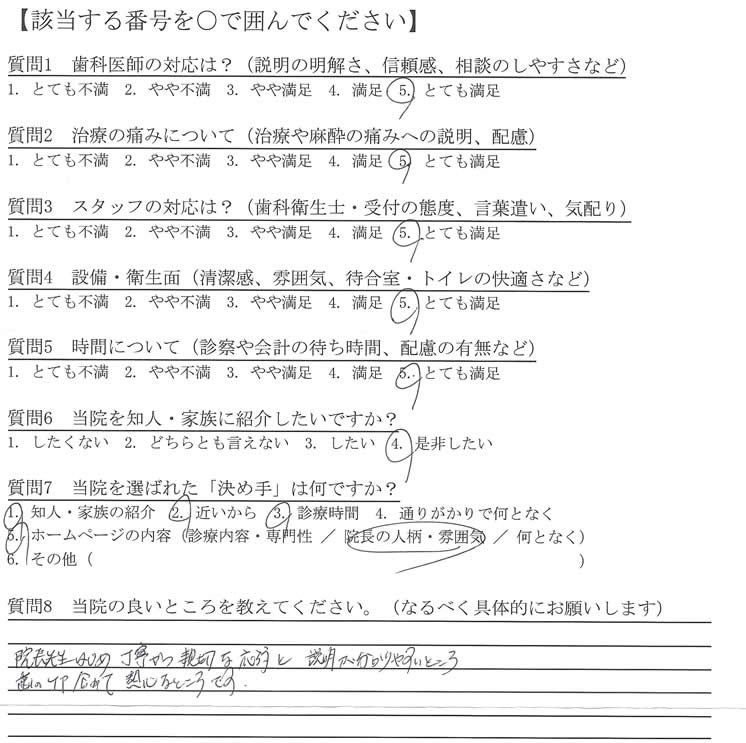 【該当する番号を○で囲んでください】
質問1 歯科医師の対応は?(説明の明解さ、信頼感、相談のしやすさなど)
1. とても不満 2. やや不満 3. やや満足 4. 満足 5. とても満足
質問2 治療の痛みについて(治療や麻酔の痛みへの説明、配慮)
1. とても不満 2. やや不満 3. やや満足 4. 満足 5. とても満足
質問3 スタッフの対応は?(歯科衛生士・受付の態度、言葉遣い、気配り)
1. とても不満 2. やや不満 3. やや満足 4. 満足 5. とても満足
質問4 設備・衛生面(清潔感、雰囲気、待合室・トイレの快適さなど)
1. とても不満 2. やや不満 3. やや満足 4. 満足 5. とても満足
質問5 時間について(診察や会計の待ち時間、配慮の有無など)
1. とても不満 2. やや不満 3. やや満足 4. 満足 5. とても満足
質問6 当院を知人・家族に紹介したいですか?
1. したくない 2. どちらとも言えない 3. したい 4. 是非したい
質問7 当院を選ばれた「決め手」は何ですか?
1. 知人・家族の紹介 2. 近いから 3. 診療時間 4. 通りがかりで何となく
5. ホームページの内容(診療内容・専門性 / 院長の人柄・雰囲気 / 何となく)
6. その他( )
質問8 当院の良いところを教えてください。(なるべく具体的にお願いします)
院長先生はじめ 丁寧かつ親切な応対と 説明が分かりやすいところ
熱心なところです.